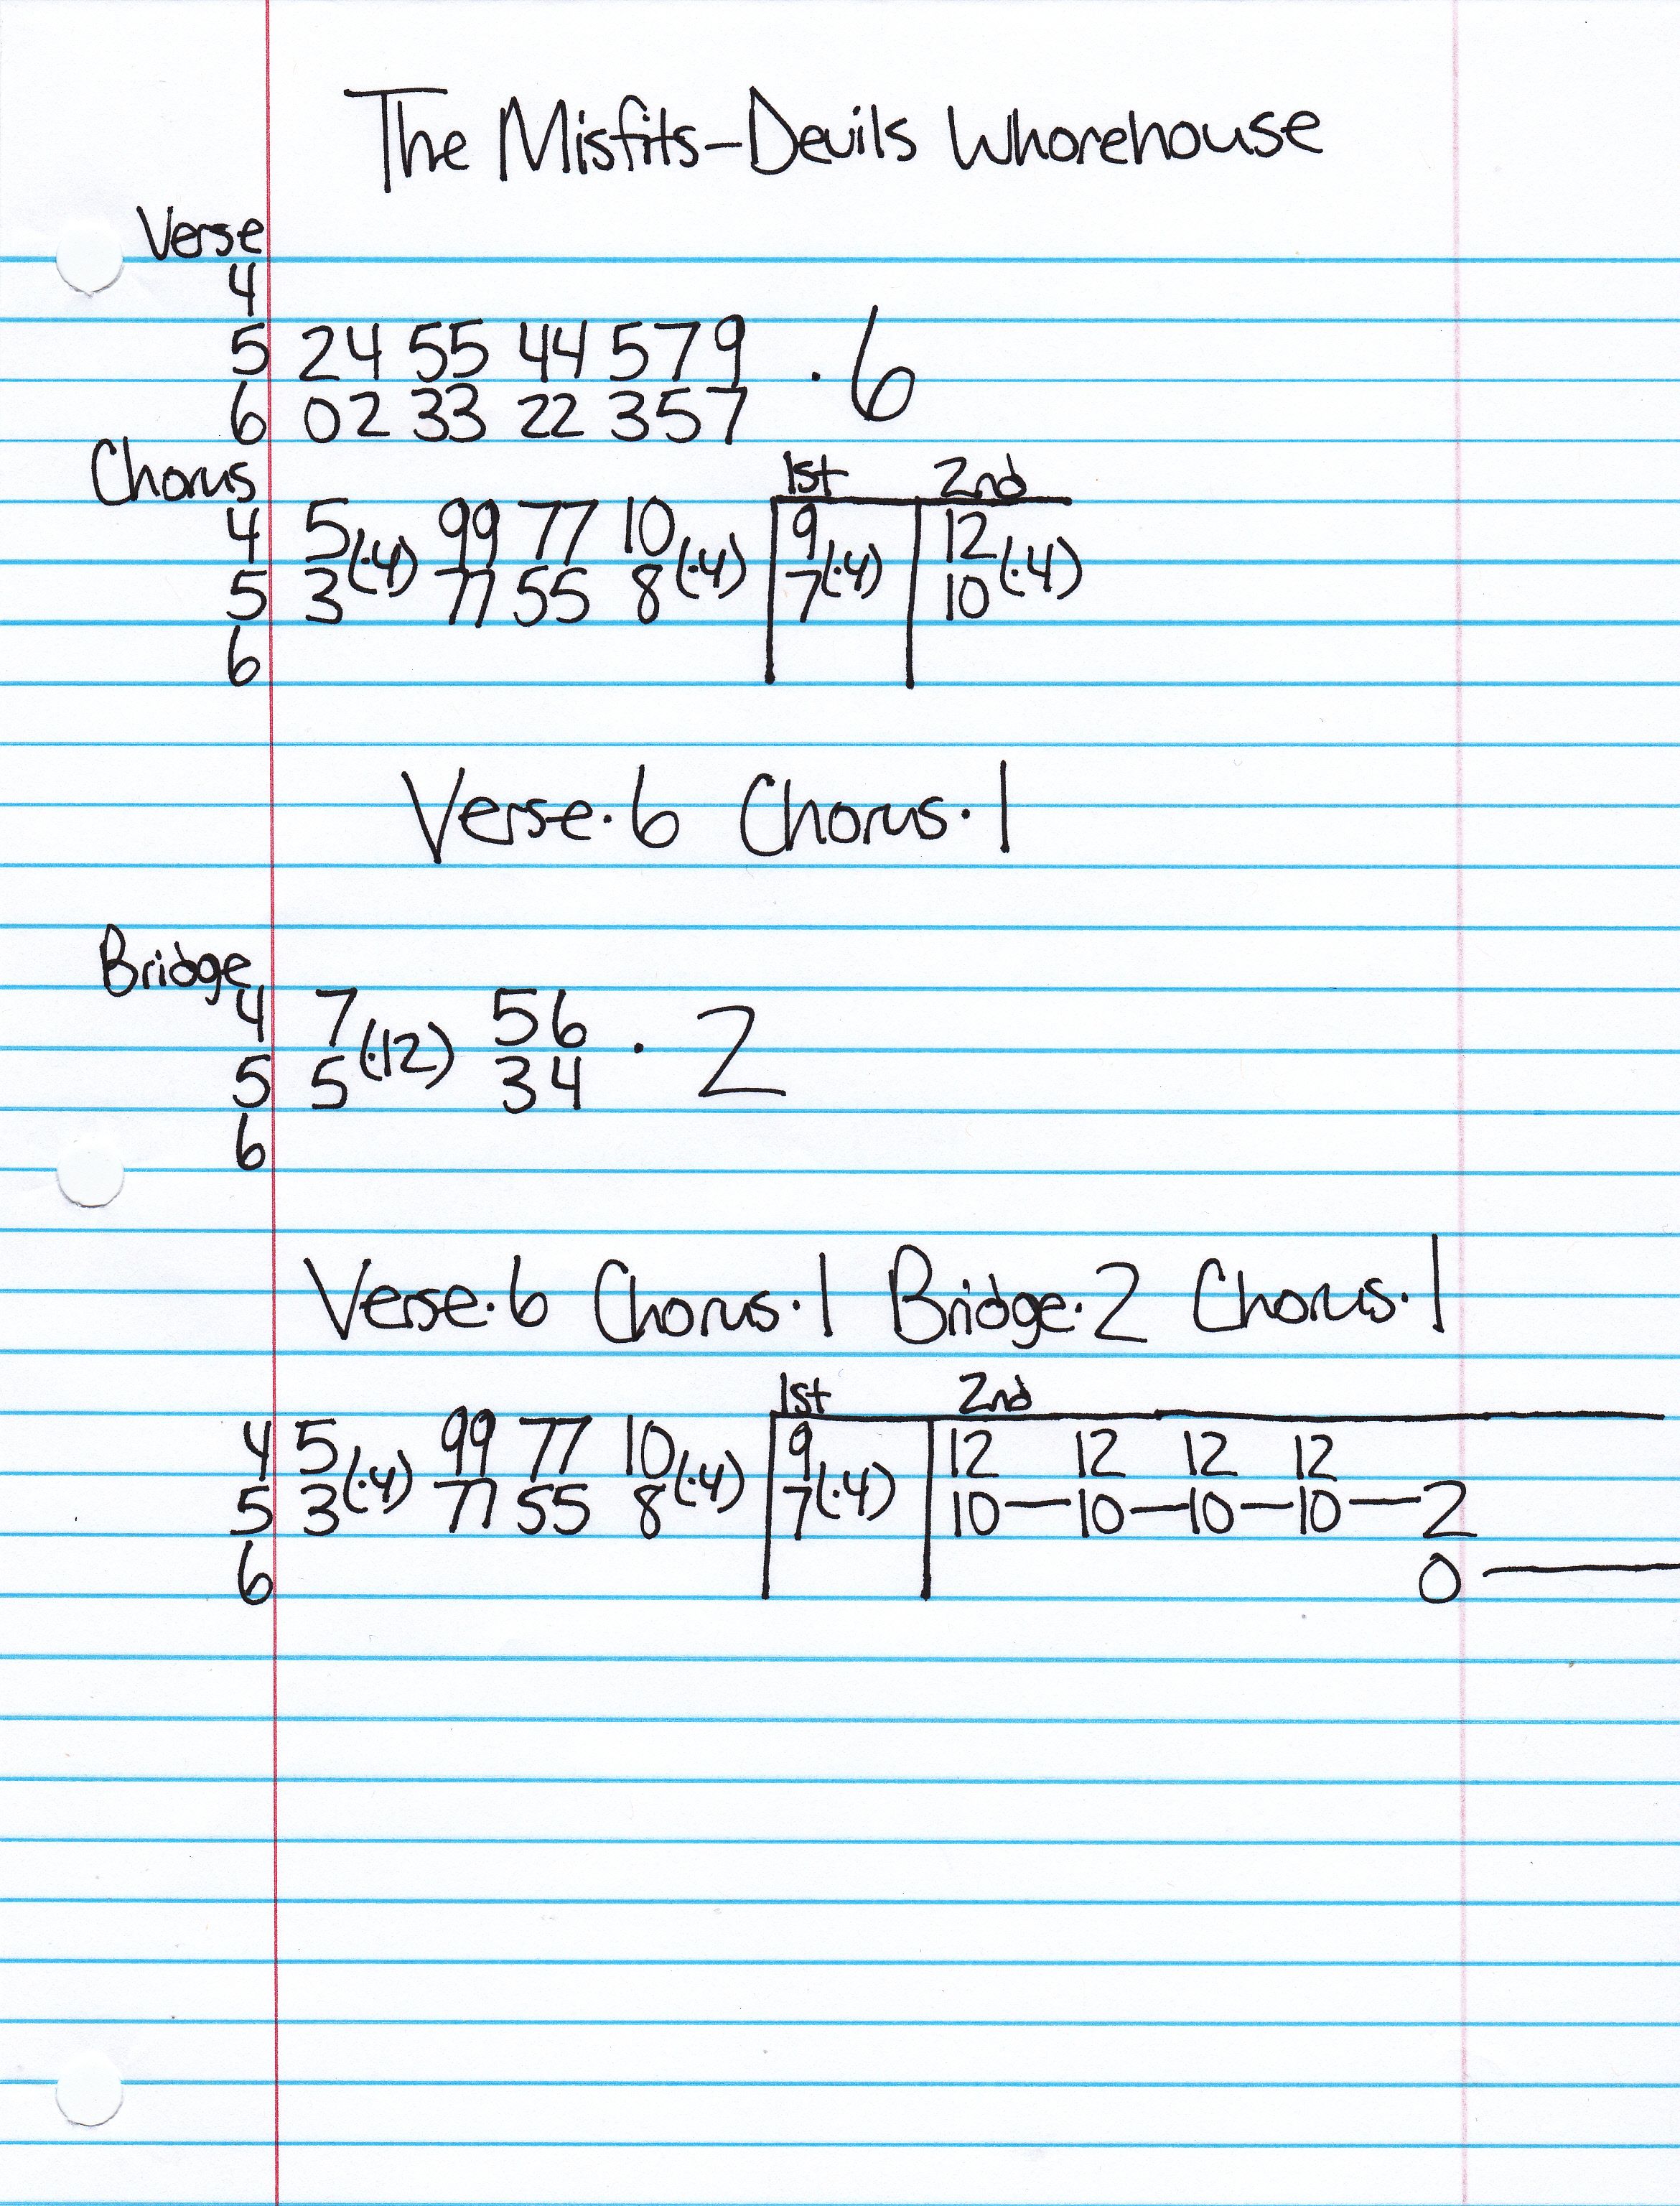 The Misfits-Devils Whorehouse
Verse
4
5 24 55 44 579 · 6
6 02 33 22 357
Chorus 1st 2nd
4 5 (·4) 99 77 10 (·4) 9 (·4) 12 (·4)
5 3 77 55 8 7 10
6
Verse·6 Chorus·1
Bridge
4 7 (·12) 56 · 2
5 5 34
6
Verse·6 Chorus·1 Bridge·2 Chorus·1
1st 2nd
4 5 (·4) 99 77 10 (·4) 9 (·4) 12 12 12 12
5 3 77 55 8 7 10—10—10—10—2
6 0—